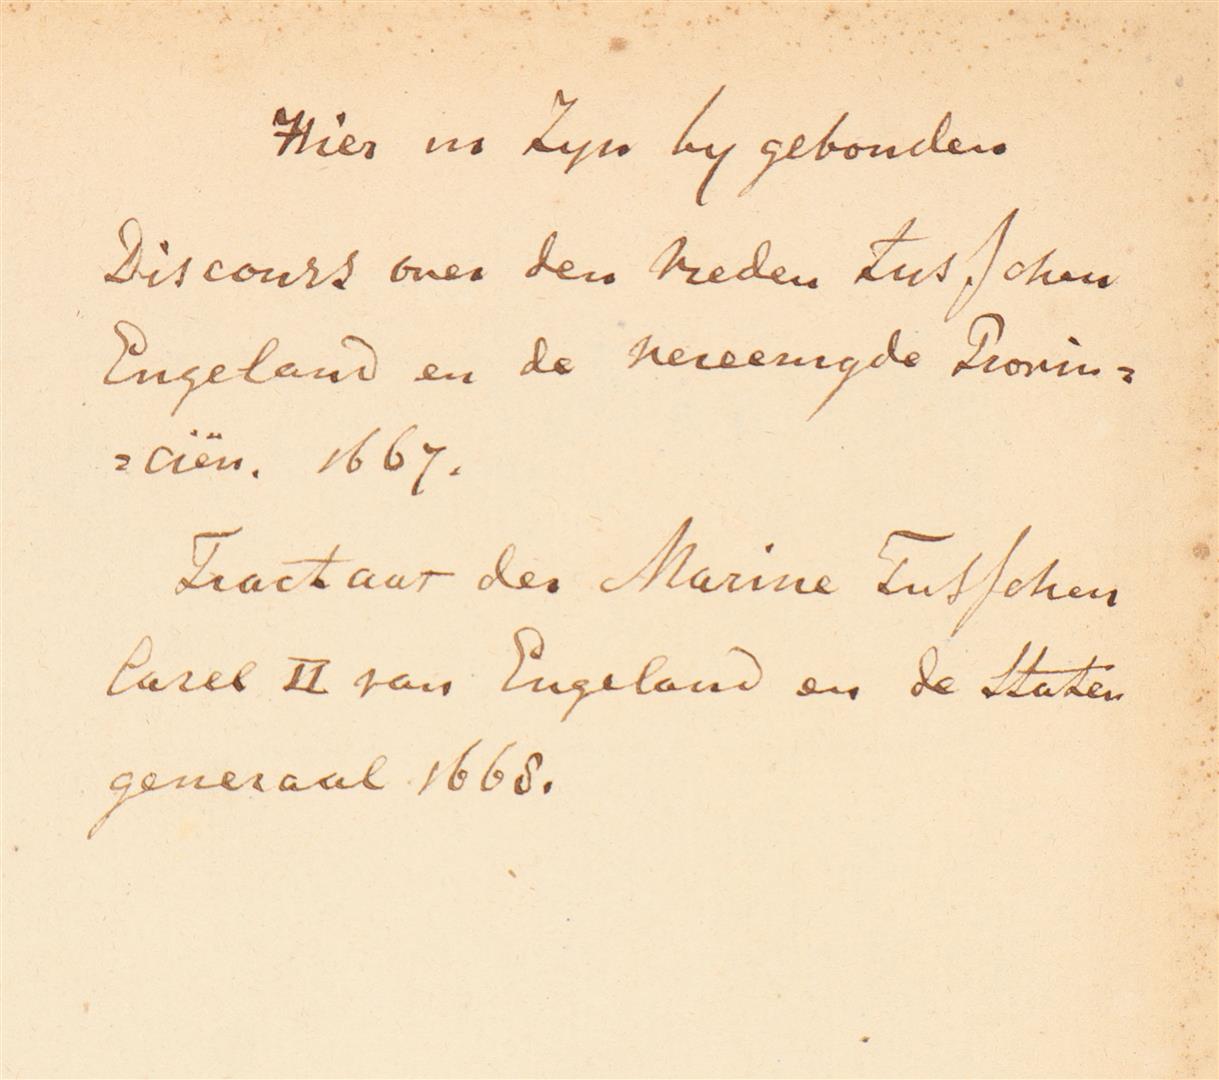 Hier in Zyn by gebonden
Discours over den Vreden tusschen
Engeland en de vereenigde Provin=
=ciën. 1667.
Tractaat der Marine Tusschen
Carel II van Engeland en de Staten
generaal 1668.